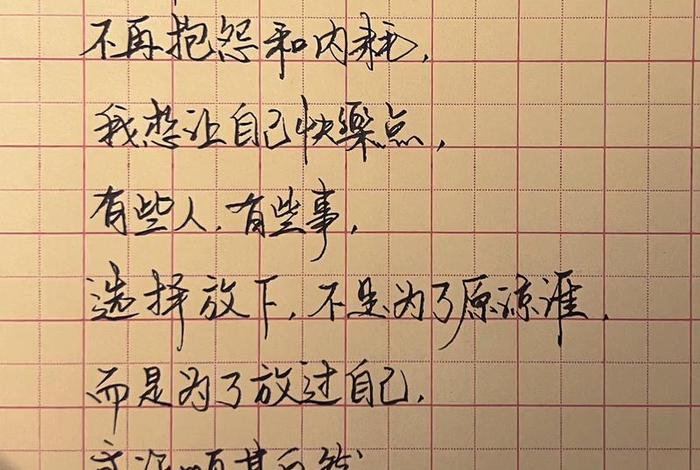 不再抱怨和内耗,
我想让自己快樂点,
有些人,有些事,
选择放下,不是为了原谅谁,
而是为了放过自己,
顺其自然